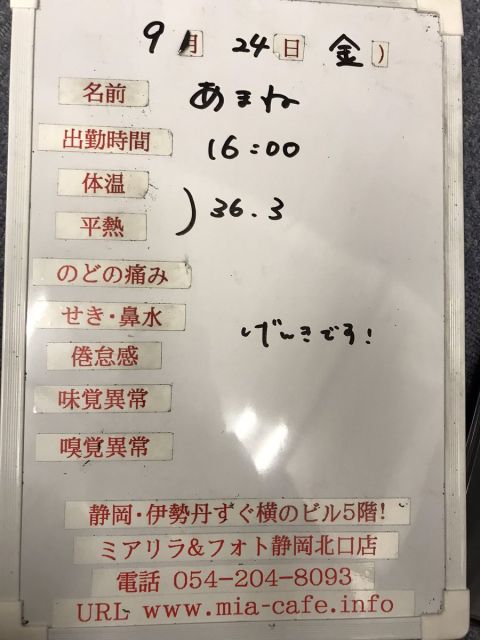 9月 24日 金)
名前 あまね
出勤時間 16:00
体温
平熱 ) 36.3
のどの痛み
せき・鼻水
げんきです!
倦怠感
味覚異常
嗅覚異常
静岡・伊勢丹すぐ横のビル5階!
ミアリラ&フォト静岡北口店
電話 054-204-8093
URL www.mia-cafe.info